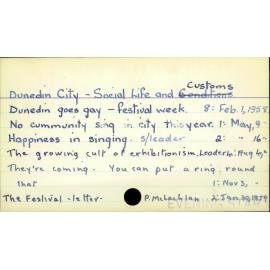 Dunedin City - Social Life and Conditions Customs
Dunedin goes gay - festival week. 8: Feb. 1, 1958
No cummunity sing in city this year. 1: May, 9 -
Happiness in singing. s/leader 2: " 16 -
The growing cult of exhibitionism, Leader 4: Aug
They're coming. You can put a ring round
that 1: Nov 3, -
The Festival - letter - P. McLachlan 2: Jan. 30, 1959
EVENING STAR